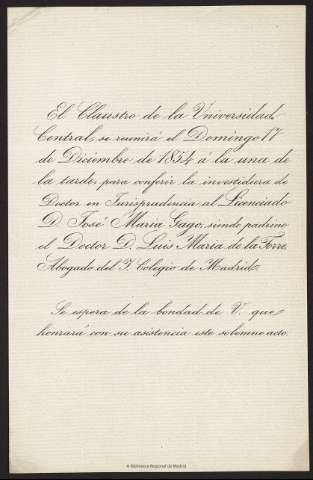 El Claustro de la Universidad
Central, se reunirá el Domingo 17
de Diciembre de 1854 á la una de
la tarde, para conferir la investidura de
Doctor en Jurisprudencia al Licenciado
D. José María Gago, siendo padrino
el Doctor D. Luis María de la Torre,
Abogado del I. Colegio de Madrid.
Se espera de la bondad de V. que
honrará con su asistencia este solemne acto.
Biblioteca Regional de Madrid